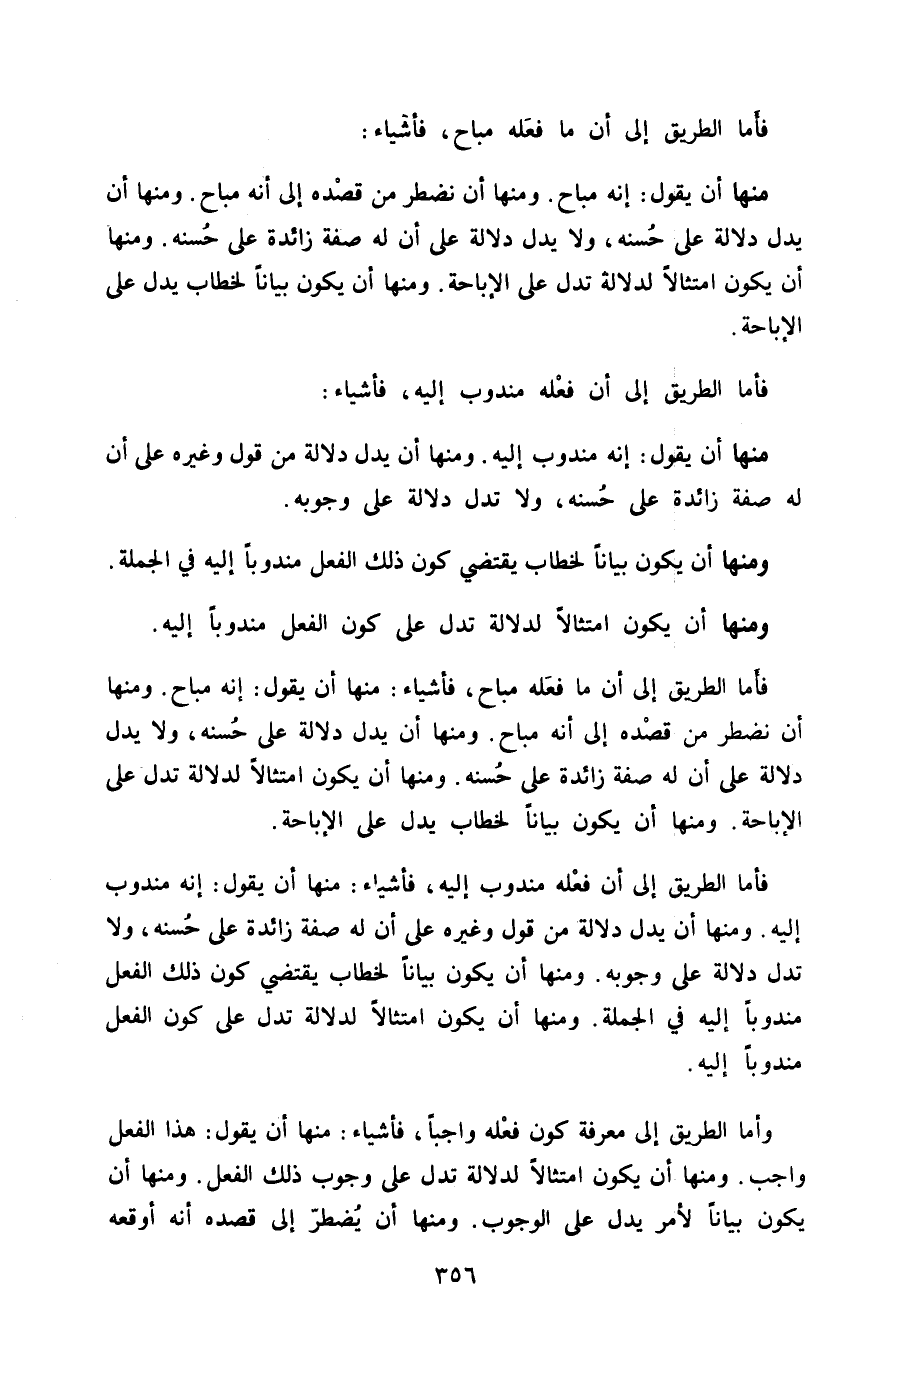 فأَما الطريق إلى أن ما فعَله مباح، فأشْياء:
منها أن يقول: إنه مباح. ومنها أن نضطر من قصْده إلى أنه مباح. ومنها أن
يدل دلالة على حُسنه، ولا يدل دلالة على أن له صفة زائدة على حُسنه. ومنها
أن يكون امتثالاً لدلالة تدل على الإباحة. ومنها أن يكون بياناً لخطاب يدل على
الإباحة.
فأما الطريق إلى أن فعْله مندوب إليه، فأشياء:
منها أن يقول: إنه مندوب إليه. ومنها أن يدل دلالة من قول وغيره على أن
له صفة زائدة على حُسنه، ولا تدل دلالة على وجوبه.
ومنها أن يكون بياناً لخطاب يقتضي كون ذلك الفعل مندوباً إليه في الجملة.
ومنها أن يكون امتثالاً لدلالة تدل على كون الفعل مندوباً إليه.
فأَما الطريق إلى أن ما فعَله مباح، فأشياء: منها أن يقول: إنه مباح. ومنها
أن نضطر من قصْده إلى أنه مباح. ومنها أن يدل دلالة على حُسنه، ولا يدل
دلالة على أن له صفة زائدة على حُسنه. ومنها أن يكون امتثالاً لدلالة تدل على
الإباحة. ومنها أن يكون بياناً لخطاب يدل على الإباحة.
فأما الطريق إلى أن فعْله مندوب إليه، فأشياء: منها أن يقول: إنه مندوب
إليه. ومنها أن يدل دلالة من قول وغيره على أن له صفة زائدة على حُسنه، ولا
تدل دلالة على وجوبه. ومنها أن يكون بياناً لخطاب يقتضي كون ذلك الفعل
مندوباً إليه في الجملة. ومنها أن يكون امتثالاً لدلالة تدل على كون الفعل
مندوباً إليه.
وأما الطريق إلى معرفة كون فعْله واجباً، فأشياء: منها أن يقول: هذا الفعل
واجب. ومنها أن يكون امتثالاً لدلالة تدل على وجوب ذلك الفعل. ومنها أن
يكون بياناً لأمر يدل على الوجوب. ومنها أن يُضطرّ إلى قصده أنه أوقعه
٣٥٦